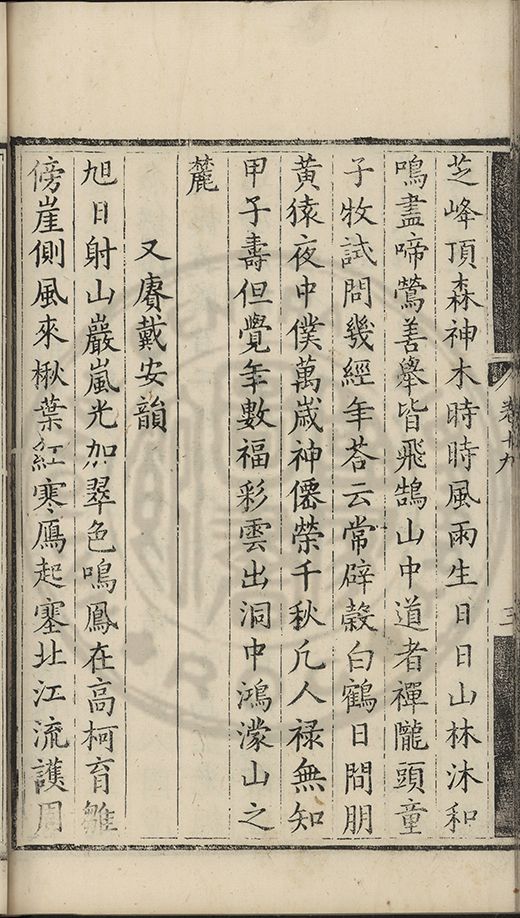 芝峰頂森神木時時風雨生日日山林沐和
鳴盡啼鶯善舉皆飛鵠山中道者禪隴頭童
子牧試問幾經年荅云常辟穀白鶴日間朋
黃猿夜中僕萬歲神僊榮千秋凢人祿無知
甲子壽但覺年數福彩雲出洞中鴻濛山之
麓
又賡戴安韻
旭日射山巖嵐光加翠色鳴鳳在高柯育雛
傍崖側風來楸葉紅寒鴈起塞北江流護周
卷十九
三